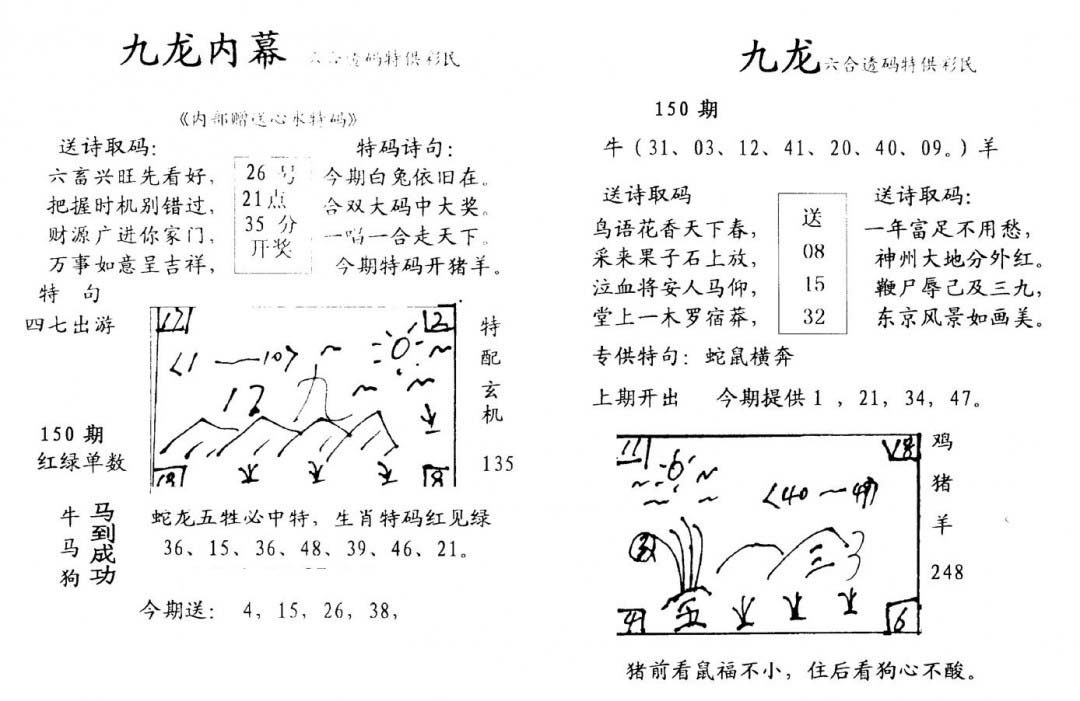 九龙内幕 六合透码特供彩民
《内部赠送心水特码》
送诗取码:
六畜兴旺先看好,
把握时机别错过,
财源广进你家门,
万事如意呈吉祥,
26 号
21点
35 分
开奖
特码诗句:
今期白兔依旧在。
合双大码中大奖。
一唱一合走天下。
今期特码开猪羊。
特 句
四七出游
150 期
红绿单数
17
12
<1——10>
12
九
18
特配玄机
135
牛马狗
马到成功
蛇龙五牲必中特, 生肖特码红见绿
36、15、36、48、39、46、21。
今期送: 4, 15, 26, 38,
九龙 六合透码特供彩民
150 期
牛(31、03、12、41、20、40、09。)羊
送诗取码
鸟语花香天下春,
采来果子石上放,
泣血将安人马仰,
堂上一木罗宿莽,
送
08
15
32
送诗取码:
一年富足不用愁,
神州大地分外红。
鞭尸辱己及三九,
东京风景如画美。
专供特句: 蛇鼠横奔
上期开出 今期提供1 , 21, 34, 47。
11
18
<40—49>
三
五
41
6
鸡
猪
羊
248
猪前看鼠福不小, 住后看狗心不酸。